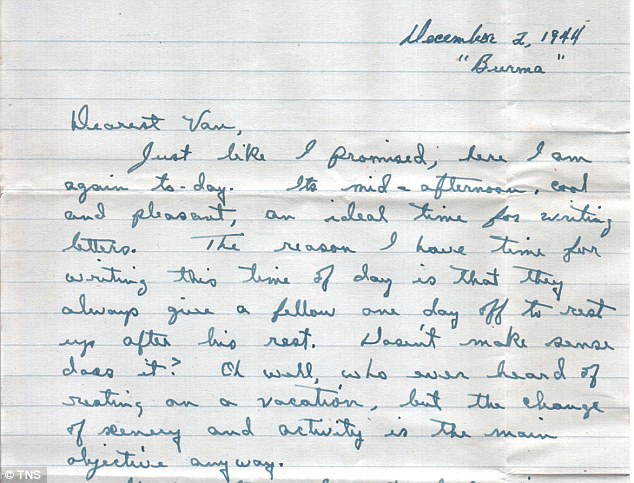 December 2, 1944
"Burma"
Dearest Van,
Just like I promised, here I am
again to-day. Its mid-afternoon, cool
and pleasant, an ideal time for writing
letters. The reason I have time for
writing this time of day is that they
always give a fellow one day off to rest
up after his rest. Dosen't make sense
does it? Oh well, who ever heard of
resting on a vacation, but the change
of scenery and activity is the main
objective anyway.
© TNS